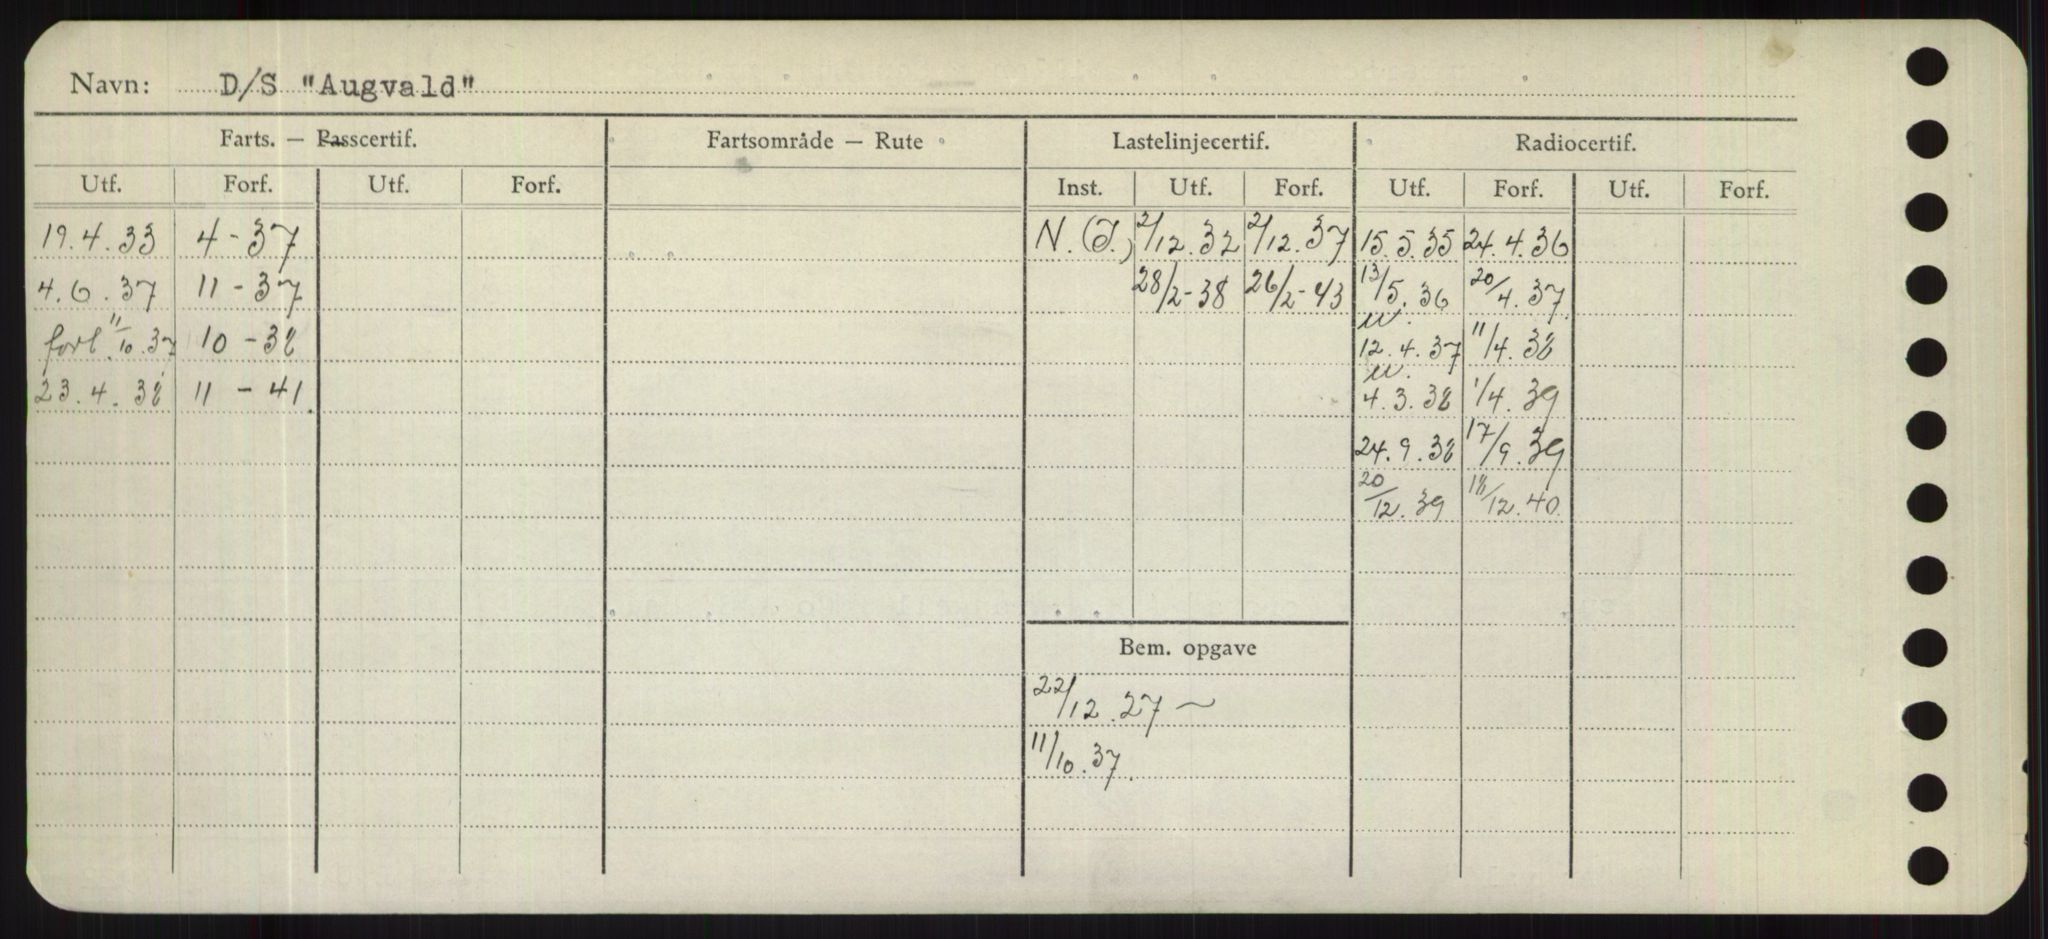 Navn: D/S "Augvald"
Farts. — Passcertif. Fartsområde — Rute Lastelinjecertif. Radiocertif.
Utf. Forf. Utf. Forf. Inst. Utf. Forf. Utf. Forf. Utf. Forf.
19.4.33 4-37 N.(I.) 2/12.32 2/12.37 15.5.35 24.4.36
4.6.37 11-37 28/2-38 26/2-43 13/5.36 20/4.37
forl. 11/10.37 10-38 12.4.37 11/4.38
23.4.38 11-41. 4.3.38 1/4.39
24.9.38 17/9.39
20/12.39 18/12.40
Bem. opgave
22/12.27 ~
11/10.37.